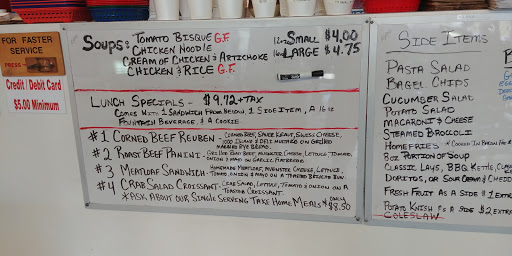 FOR FASTER
SERVICE
PRESS
Credit / Debit Card
$5.00 Minimum
SOUPS: TOMATO BISQUE G.F.
CHICKEN NOODLE
CREAM OF CHICKEN & ARTICHOKE
CHICKEN & RICE G.F.
12oz SMALL $4.00
16oz LARGE $4.75
LUNCH SPECIALS - $9.72 + TAX
COMES WITH 1 SANDWICH FROM BELOW, 1 SIDE ITEM, A 16 oz
FOUNTAIN BEVERAGE & A COOKIE
#1 CORNED BEEF REUBEN - CORNED BEEF, SAUER KRAUT, SWISS CHEESE,
1000 ISLAND & DELI MUSTARD ON GRILLED
MARBLE RYE BREAD.
#2 ROAST BEEF PANINI - GRILLED ROAST BEEF, MUENSTER CHEESE, LETTUCE, TOMATO,
ONION & MAYO ON GARLIC
#3 MEATLOAF SANDWICH - HOMEMADE MEATLOAF, MUENSTER CHEESE, LETTUCE,
TOMATO, ONION & MAYO ON A TOASTED BRIOCHE BUN
#4 CRAB SALAD CROISSANT - CRAB SALAD, LETTUCE, TOMATO & ONION ON A
TOASTED CROISSANT.
*ASK ABOUT OUR SINGLE SERVING TAKE HOME MEALS* ONLY $8.50
SIDE ITEMS
PASTA SALAD
BAGEL CHIPS
CUCUMBER SALAD
POTATO SALAD
MACARONI & CHEESE
STEAMED BROCCOLI
HOMEFRIES * COOKED IN BACON FAT
8oz PORTION OF SOUP
CLASSIC LAYS, BBQ, KETTLE,
DORITOS, OR SOUR CREAM & CHEDD
FRESH FRUIT AS A SIDE $1 EXTRA
POTATO KNISH AS A SIDE $2 EXTRA
COLESLAW